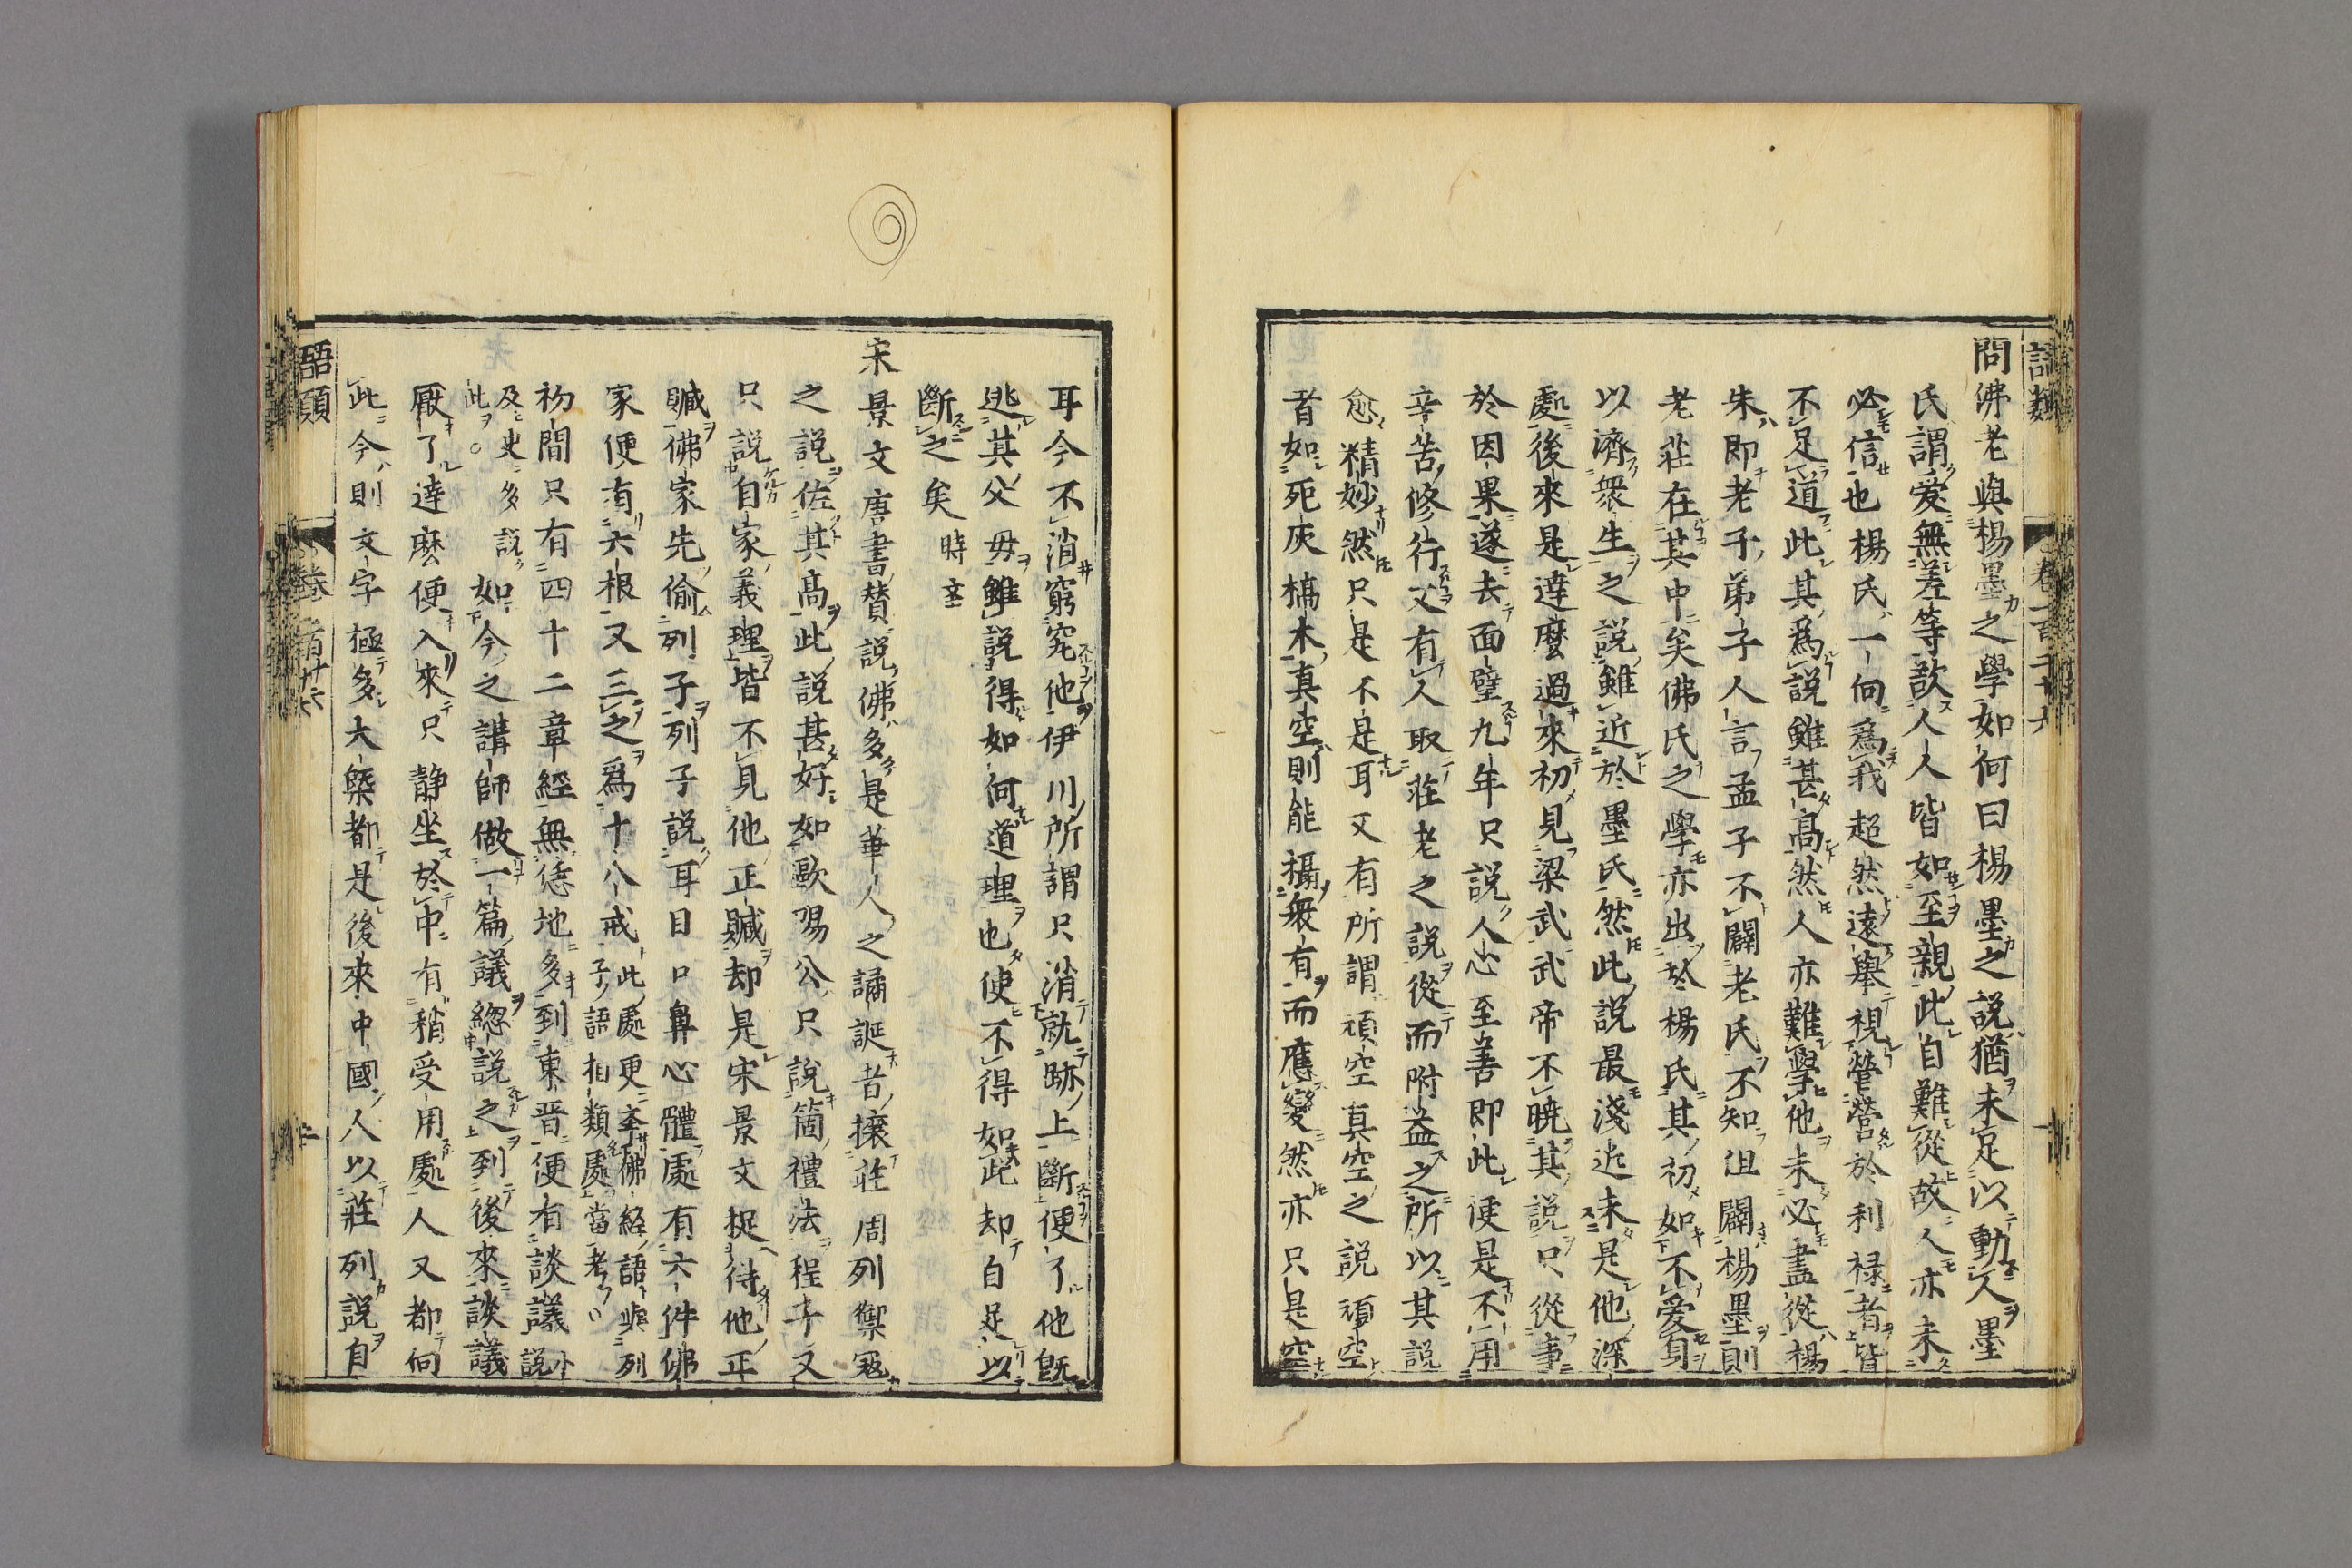 問佛老與楊墨之學如何曰楊墨之說猶未足以動人墨
氏謂愛無差等欲人人皆如至親此自難從故人亦未
必信也楊氏一向爲我超然遠舉視營營於利祿者皆
不足道此其爲說雖甚高然人亦難學他未必盡從楊
朱即老子弟子人言孟子不闢老氏不知但闢楊墨則
老莊在其中矣佛氏之學亦出於楊氏其初如不愛身
以濟衆生之說雖近於墨氏然此說最淺近未是他深
處後來是達麼過來初見梁武武帝不曉其說只從事
於因果遂去面壁九年只說人心至善即此便是不用
辛苦修行又有人取莊老之說從而附益之所以其說
愈精妙然只是不是耳又有所謂頑空真空之說頑空
者如死灰槁木真空則能攝衆有而應變然亦只是空
耳今不消窮究他伊川所謂只消就跡上斷便了他既
逃其父母雖說得如何道理也使不得如此却自足以
斷之矣 時舉
宋景文唐書贊說佛多是華人之譎誕者攘莊周列禦寇
之說佐其高此說甚好如歐陽公只說箇禮法程子又
只說自家義理皆不見他正贓却是宋景文捉得他正
贓佛家先偷列子列子說耳目口鼻心體處有六件佛
家便有六根又三之爲十八戒 此處更舉佛經語與列
子語相類處當考
初間只有四十二章經無恁地多到東晉便有談議 說
及史多說
此
如今之講師做一篇議總說之到後來談議
厭了達麼便入來只靜坐於中有稍受用處人又都向
此今則文字極多大槩都是後來中國人以莊列說自
語類 卷一百二十六